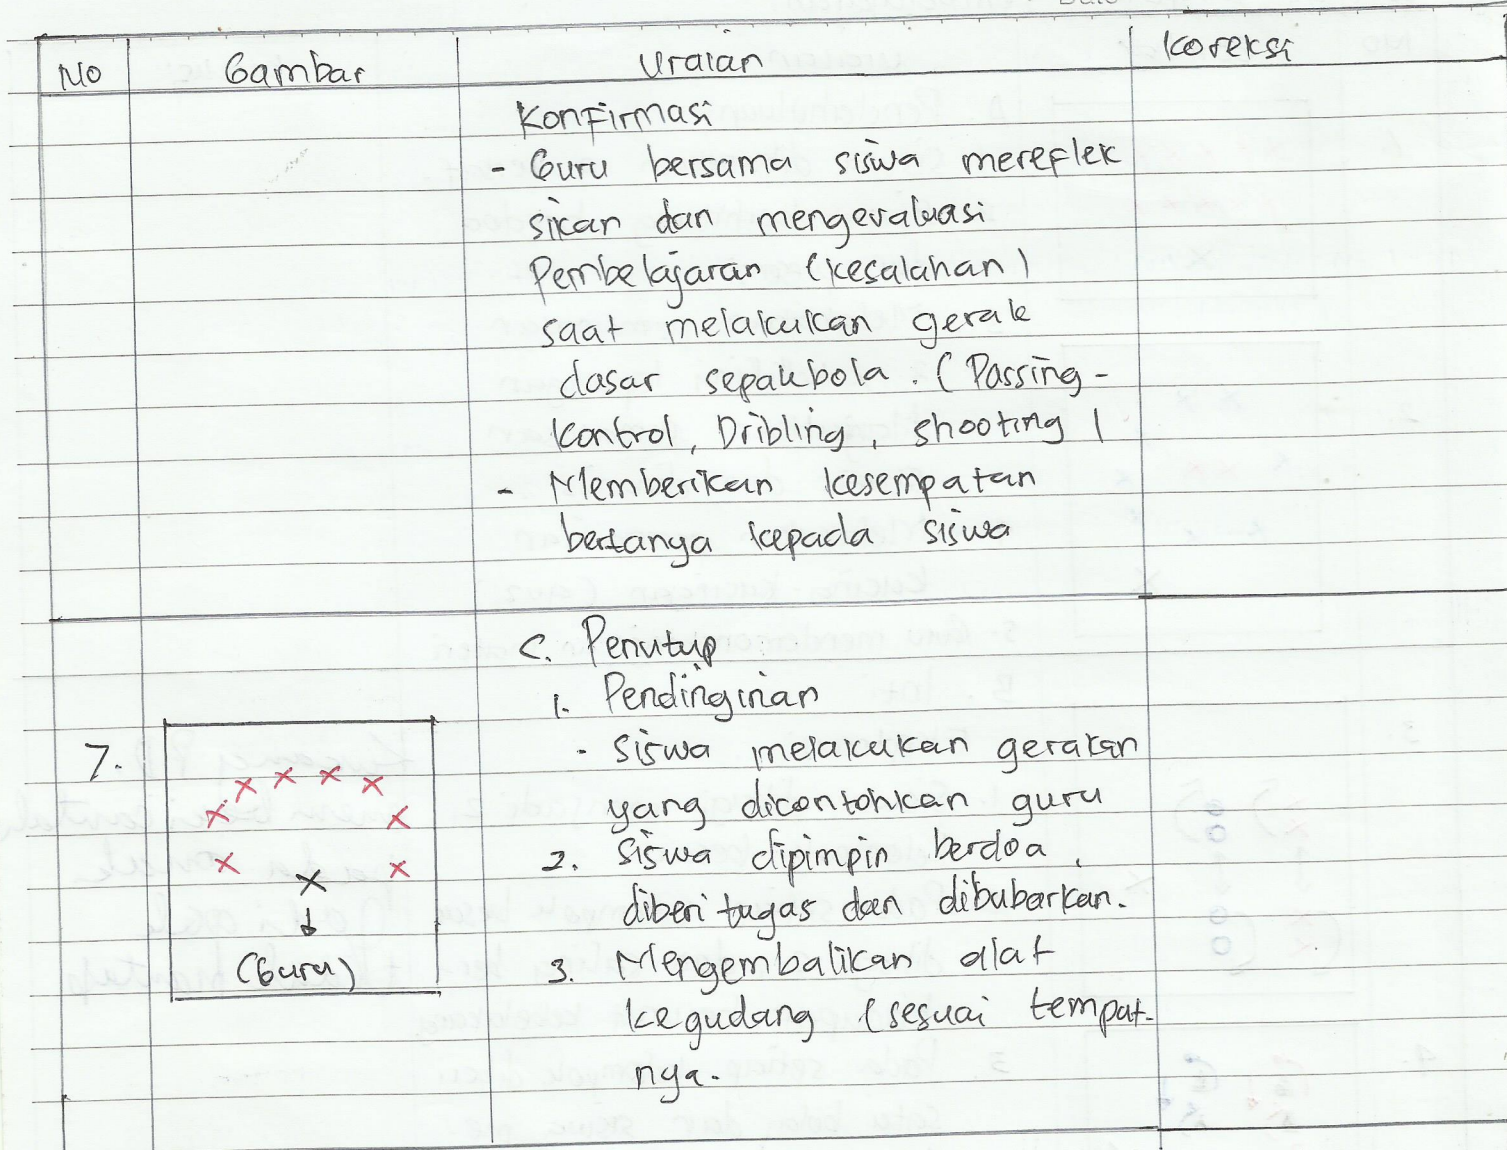 No Gambar Uraian Koreksi
Konfirmasi
- Guru bersama siswa mereflek
sikan dan mengevaluasi
Pembelajaran (kesalahan)
saat melakukan gerak
dasar sepakbola. (Passing-
Kontrol, Dribling, shooting)
- Memberikan kesempatan
bertanya kepada siswa
C. Penutup
1. Pendinginan
7.
- Siswa melakukan gerakan
yang dicontohkan guru
2. Siswa dipimpin berdoa,
diberi tugas dan dibubarkan.
(Guru)
3. Mengembalikan alat
kegudang (sesuai tempat-
nya.